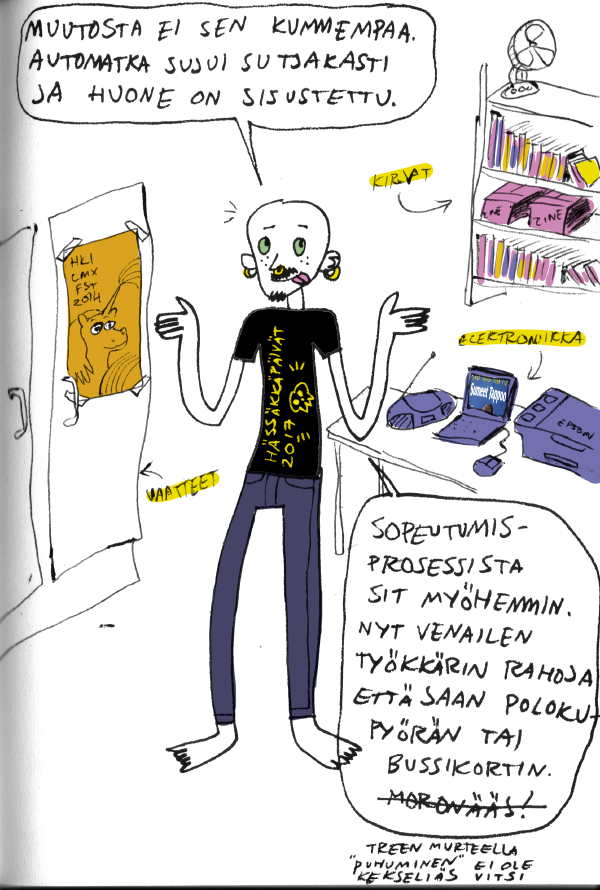 MUUTOSTA EI SEN KUMMEMPAA.
AUTOMATKA SUJUI SUTJAKASTI
JA HUONE ON SISUSTETTU.
KIRJAT
ZINE
ZINE
HKI
CMX
FST
2014
ELEKTRONIIKKA
Sumeet Tappoo
EPSON
HÄSSÄKKÄPÄIVÄT
2017
VAATTEET
SOPEUTUMIS-
PROSESSISTA
SIT MYÖHEMMIN.
NYT VENAILEN
TYÖKKÄRIN RAHOJA
ETTÄ SAAN POLOKU-
PYÖRÄN TAI
BUSSIKORTIN.
MOROVÄÄS!
TREEN MURTEELLA
"PUHUMINEN" EI OLE
KEKSELIÄS VITSI